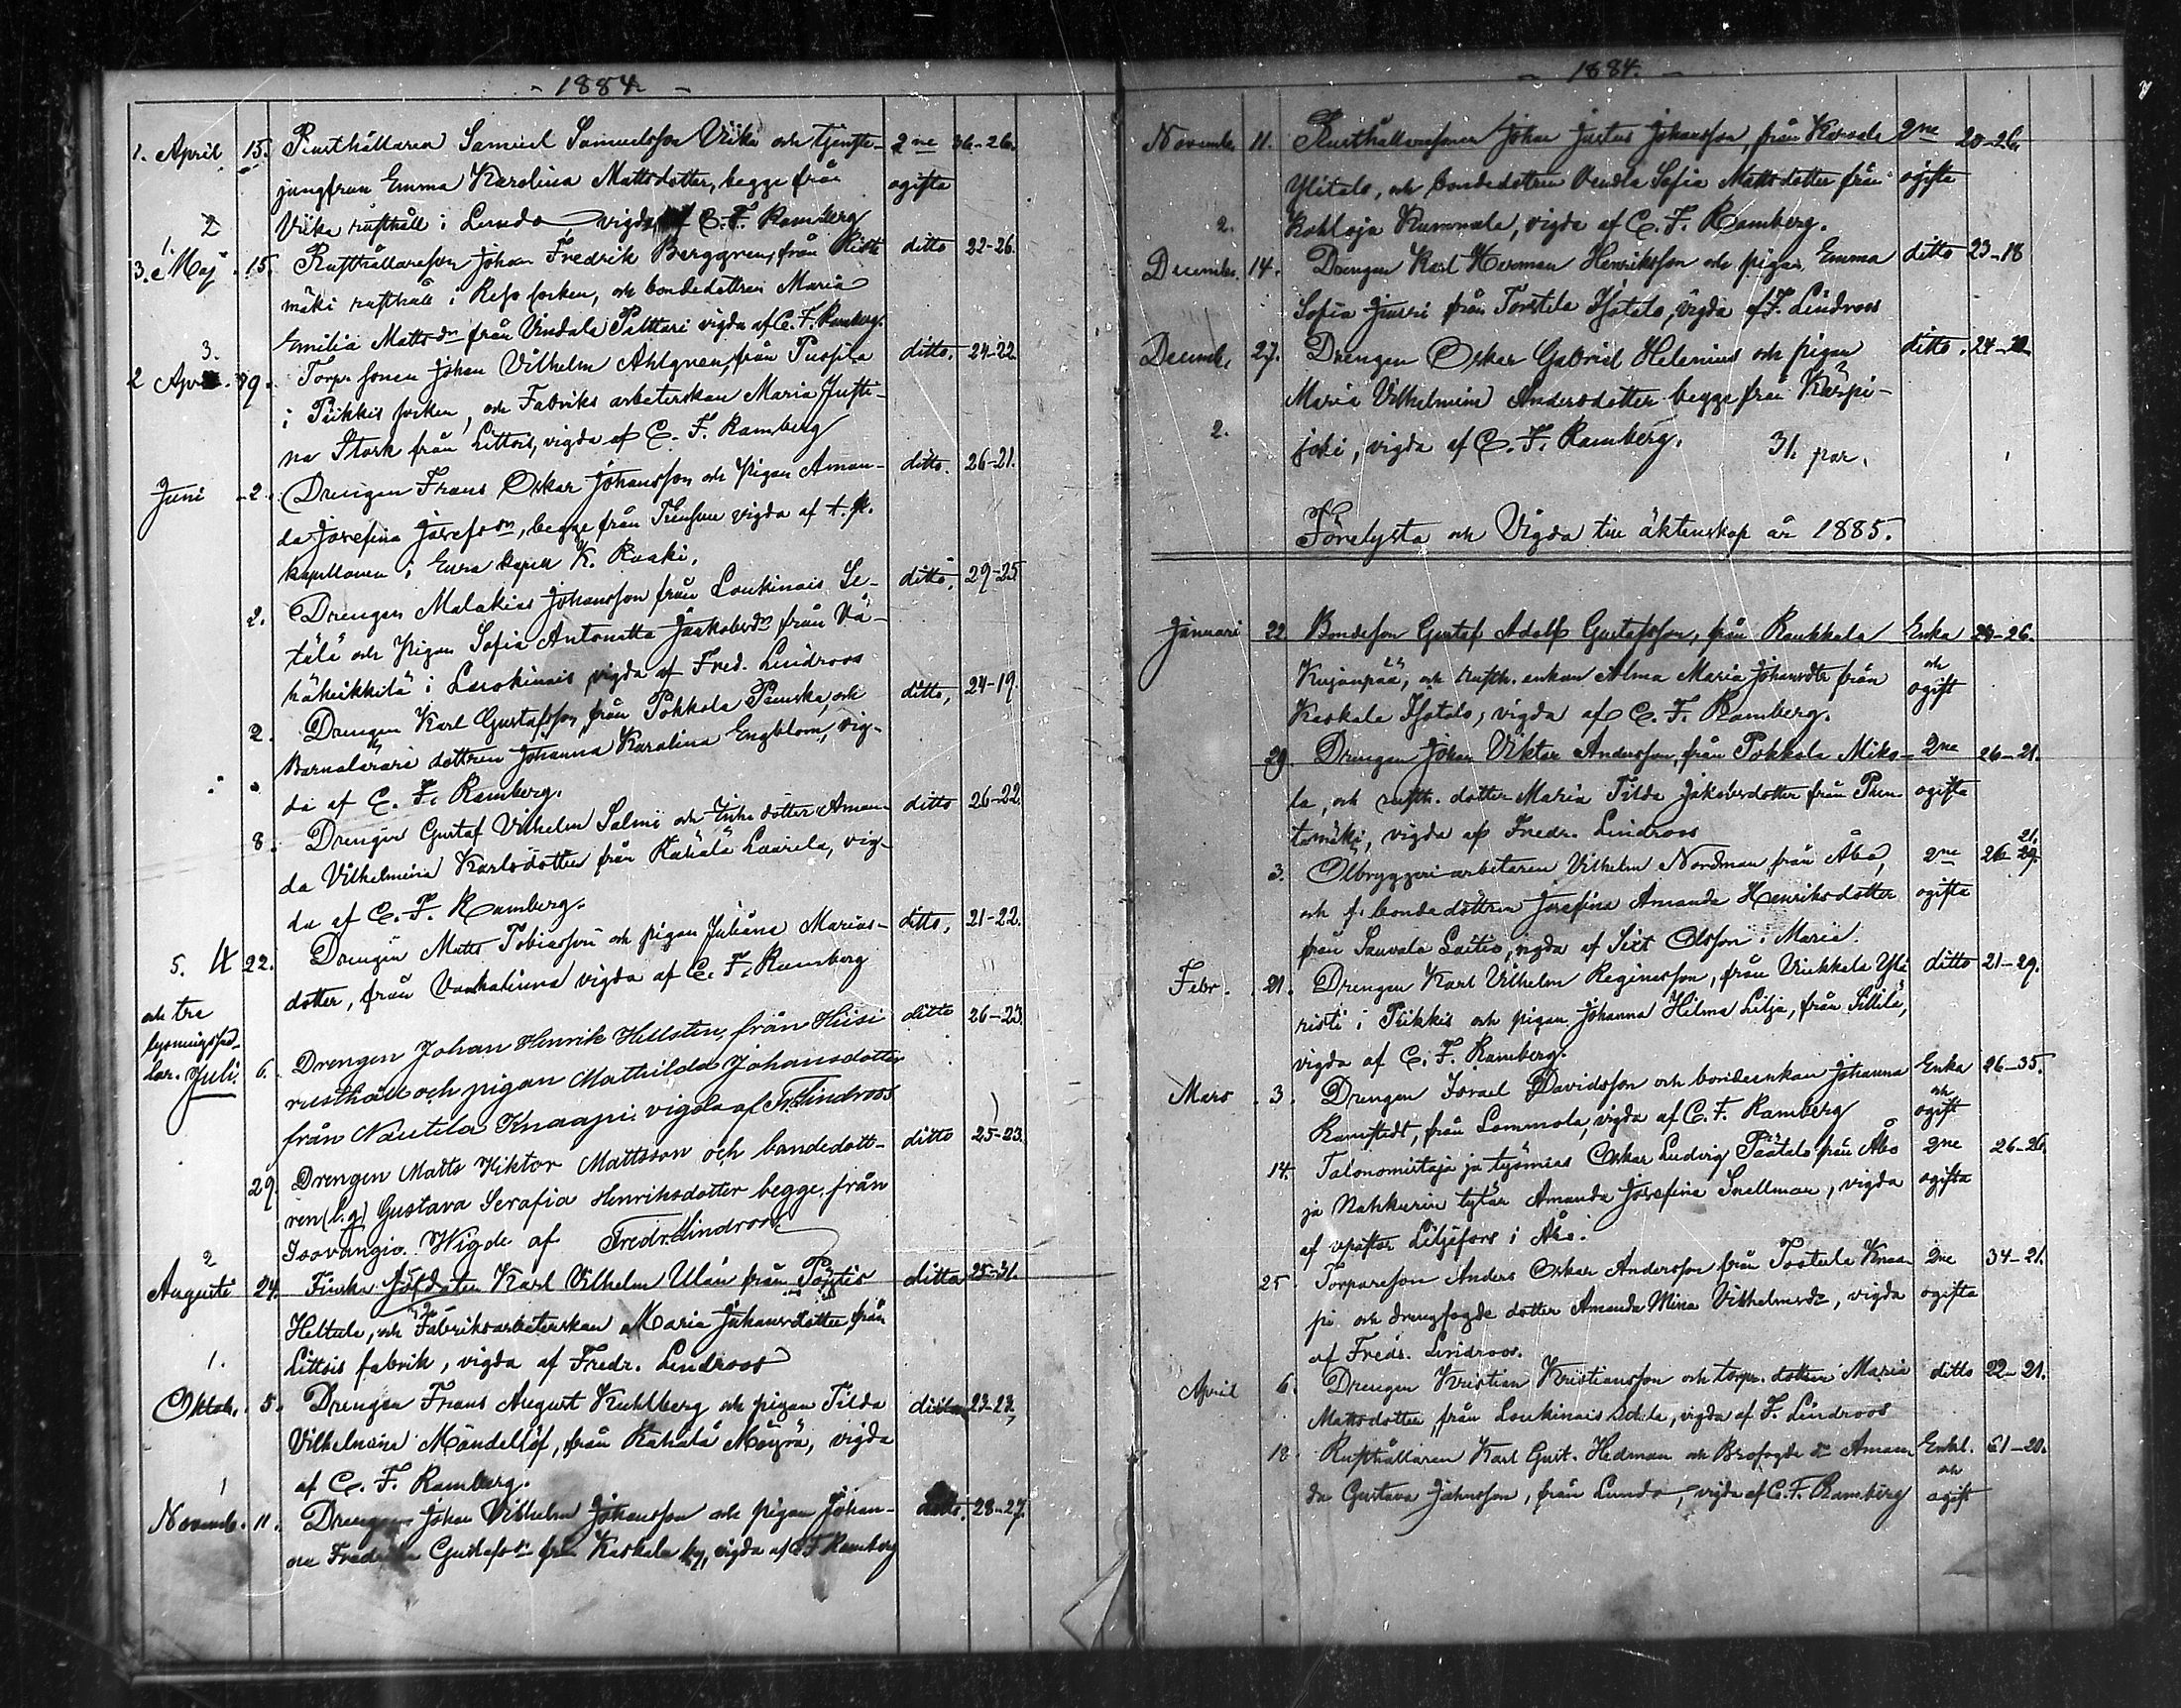 - 1884 -
1. April 15. Rusthållaren Samuel Samuelsson Viika och tjenste- 2ne 36-26.
jungfrun Emma Karolina Mattsdotter, begge från ogifta
2 Viika rusthåll i Lundo, vigda af C. F. Ramberg
1.
3. Maj 15. Rusthållareson Johan Fredrik Berggren, från Risti ditto 22-26.
mäki rusthåll i Reso socken, och bondedottren Maria
Emilia Mattsdr från Vindala Palttari vigda af C. F. Ramberg.
3.
2 April 9. Torp. sonen Johan Vilhelm Ahlgren, från Puosila ditto. 24-22
i Piikkis socken, och Fabriks arbeterskan Maria Justi-
na Stark från Littois, vigda af C. F. Ramberg
Juni 2. Drengen Frans Oskar Johansson och pigan Aman- ditto. 26-21.
da Josefina Josefsdr, begge från vigda af t. f.
kapellanen i Eura kapell K. Kaski.
2. Drengen Malakias Johansson från Loukinais Se- ditto. 29-25
tälä och pigan Sofia Antonetta Jaakobsdr från Vä-
häheikkilä i Loukinais vigda af Fred. Lindroos
2. Drengen Karl Gustafsson, från Pokkola Panska, och ditto, 24-19
Barnalärare dottren Johanna Karolina Engblom, vig-
da af C. F. Ramberg.
8. Drengen Gustaf Vilhelm Salmi och Enke dotter Aman- ditto 26-22.
da Vilhelmina Karlsdotter från Rähälä Laurila, vig-
da af C. F. Ramberg.
5. 4 22. Drengen Matts Tobiasson och pigan Juliana Marias- ditto. 21-22.
dotter, från Vanhalinna vigda af C. F. Ramberg
och tre
lysningssed-
lar. Juli. 6. Drengen Johan Henrik Hellsten, från Hiisi ditto 26-23.
rusthåll och pigan Mathilda Johansdotter
från Nautela Knaapi. vigda af Fr. Lindroos
29. Drengen Matts Viktor Mattsson och bondedott- ditto 25-23.
ren (l.g) Gustava Serafia Henriksdotter begge från
Isovangio. Wigde af Fredr. Lindroos
2
Augusti 24. Finska Soldaten Karl Vilhelm Ulén från Pöytis ditto 25-31.
Heltula, och Fabriksarbeterskan Maria Johansdotter från
1. Littois fabrik, vigda af Fredr. Lindroos
Oktob. 5. Drengen Frans August Kuhlberg och pigan Tilda ditto 23-23.
Vilhelmina Mandellöf, från Rähälä Mäyrä, vigda
1 af C. F. Ramberg.
Novemb. 11. Drengen Johan Vilhelm Johansson och pigan Johan- ditto. 28-27.
na Fredrika Gustafsdr från Kaskala by, vigda af C F Ramberg
- 1884. -
Novemb. 11. Rusthållaresonen Johan Justus Johansson, från Karvala 2ne 20-26.
Ylitalo, och bondedottren Vendla Sofia Mattsdotter från ogifta
2. Kohloja Kummala, vigda af C. F. Ramberg.
Decemb. 14. Drengen Karl Herman Henriksson och pigan Emma ditto 23-18
Sofia Jussi från Torstila Isotalo, vigda af F. Lindroos
Decemb. 27. Drengen Oskar Gabriel Helenius och pigan ditto. 24-20
Maria Vilhelmina Andersdotter begge från Karpi-
2. joki, vigda af C. F. Ramberg. 31. par.
Förelysta och Vigda till äktenskap år 1885.
Januari 22 Bondeson Gustaf Adolf Gustafsson, från Raukkala Enka 24-26.
Kujanpää, och rusth. enkan Alma Maria Johansdtr från och ogift
Kaskala Isotalo, vigda af C. F. Ramberg.
29. Drengen Johan Viktor Andersson, från Pokkola Miko- 2ne 26-21.
la, och rusth. dotter Maria Tilda Jakobsdotter från Pun- ogifta
tamäki, vigda af Fredr. Lindroos
21.
3. Ölbryggeriarbetaren Vilhelm Nordman, från Åbo, 2ne 26-29.
och f. bonde dottren Josefina Amanda Henriksdotter ogifta
från Sauvala Laitio, vigda af Sixt Olsson i Maria.
Febr. 21. Drengen Karl Vilhelm Reginasson, från Viukkala Yli ditto 21-29.
risti i Piikkis och pigan Johanna Hilma Lilja, från Sillilä,
vigda af C. F. Ramberg.
Mars 3. Drengen Israel Davidsson och bondeenkan Johanna Enka 26-35.
Ramstedt, från Lommola, vigda af C. F. Ramberg och ogift
14. Talonomistaja ja työmies Oskar Ludvig Päätalo från Åbo 2ne 26-26.
ja Nahkurin tytär Amanda Josefina Snellman, vigda ogifta
af v. pastor Liljefors i Åbo.
25. Torpareson Anders Oskar Andersson från Tosteela Knaa- 2ne 34-21.
pi och drengfogde dotter Amanda Mina Vilhelmsdr, vigda ogifta
af Fredr. Lindroos.
April 6. Drengen Kristian Kristiansson och torp. dottren Maria ditto 22-21.
Mattsdotter, från Loukinais vigda af F. Lindroos
12. Rusthållaren Karl Gust. Hedman och Brofogde dr Aman- Enkl. 61-20.
da Gustava Johnsson, från Lundo, vigda af C. F. Ramberg och ogift